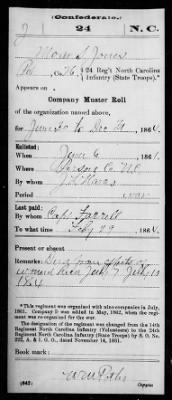 (Confederate.)
J 24 N. C.
Jones
Pvt, Co. H, 24 Reg't North Carolina
Infantry (State Troops).*
Appears on
Company Muster Roll
of the organization named above,
for June 30 to Dec 31, 1864.
Enlisted:
When June 6, 1861.
Where Person Co
By whom
Period war
Last paid:
By whom Capt
To what time Feby 29, 1864.
Present or absent
Remarks: Died from effects of
wound
1864
*This regiment was organized with nine companies in July,
1861. Company D was added in May, 1862, when the regiment
was reorganized for the war.
The designation of the regiment was changed from the 14th
Regiment North Carolina Infantry (Volunteers) to the 24th
Regiment North Carolina Infantry (State Troops) by S. O. No.
222, A. & I. G. O., dated November 14, 1861.
Book mark:
(642) Copyist.